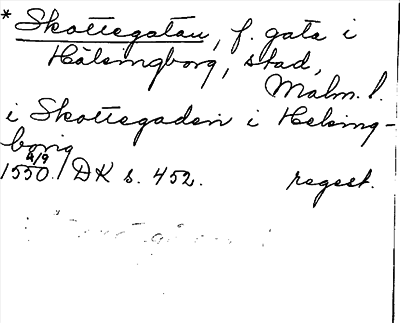 * Skottegatan, f. gata i
Hälsingborg, stad,
Malm. l.
i Skottegaden i Helsing-
borg
4/9
1550. DK s. 452. regest.